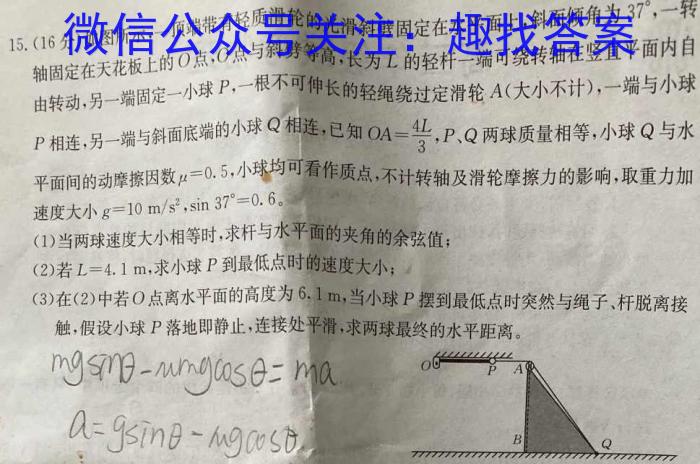 15.(16分)如图所示,顶端带有轻质滑轮的
固定在水平面上,斜面倾角为37°,一转
微信公众号关注：趣找答案
轴固定在天花板上的O点,O点与斜劈等高,长为L的轻杆一端可绕转轴在竖直平面内自
由转动,另一端固定一小球P,一根不可伸长的轻绳绕过定滑轮A(大小不计),一端与小球
P相连,另一端与斜面底端的小球Q相连,已知OA=4L/3,P、Q两球质量相等,小球Q与水
平面间的动摩擦因数μ=0.5,小球均可看作质点,不计转轴及滑轮摩擦力的影响,取重力加
速度大小g=10 m/s²,sin 37°=0.6。
(1)当两球速度大小相等时,求杆与水平面的夹角的余弦值;
(2)若L=4.1 m,求小球P到最低点时的速度大小;
(3)在(2)中若O点离水平面的高度为6.1 m,当小球P摆到最低点时突然与绳子、杆脱离接
触,假设小球P落地即静止,连接处平滑,求两球最终的水平距离。
mgsinθ-μmgcosθ=ma
a=gsinθ-μgcosθ
O P A
B Q